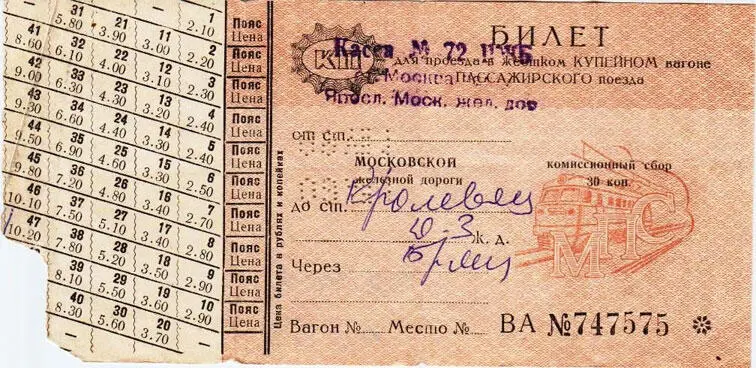 31 21 11 1 Пояс
5.80 3.90 3.00 2.10 Цена
41 32 22 12 2 Пояс
8.60 6.10 4.00 3.10 2.20 Цена
42 33 23 13 3 Пояс
9.00 6.30 4.30 3.20 2.30 Цена
43 34 24 14 4 Пояс
9.30 6.60 4.40 3.30 2.40 Цена
44 35 25 15 5 Пояс
9.50 6.90 4.60 3.30 2.40 Цена
45 36 26 16 6 Пояс
9.80 7.20 4.80 3.40 2.50 Цена
46 37 27 17 7 Пояс
10.10 7.50 5.10 3.40 2.70 Цена
47 38 28 18 8 Пояс
10.20 7.80 5.20 3.50 2.80 Цена
39 29 19 9 Пояс
8.10 5.50 3.60 2.90 Цена
40 30 20 10 Пояс
8.30 5.60 3.70 2.90 Цена
Цена билета в рублях и копейках
КП
БИЛЕТ
для проезда в жестком КУПЕЙНОМ вагоне
ПАССАЖИРСКОГО поезда
Касса № 72 ЦЖБ
Москва
Яросл. Моск. жел. дор
от ст.
МОСКОВСКОЙ
железной дороги
комиссионный сбор
30 коп.
до ст. Кролевец
Ю-З ж. д.
Через
МПС
Вагон № Место № ВА №747575